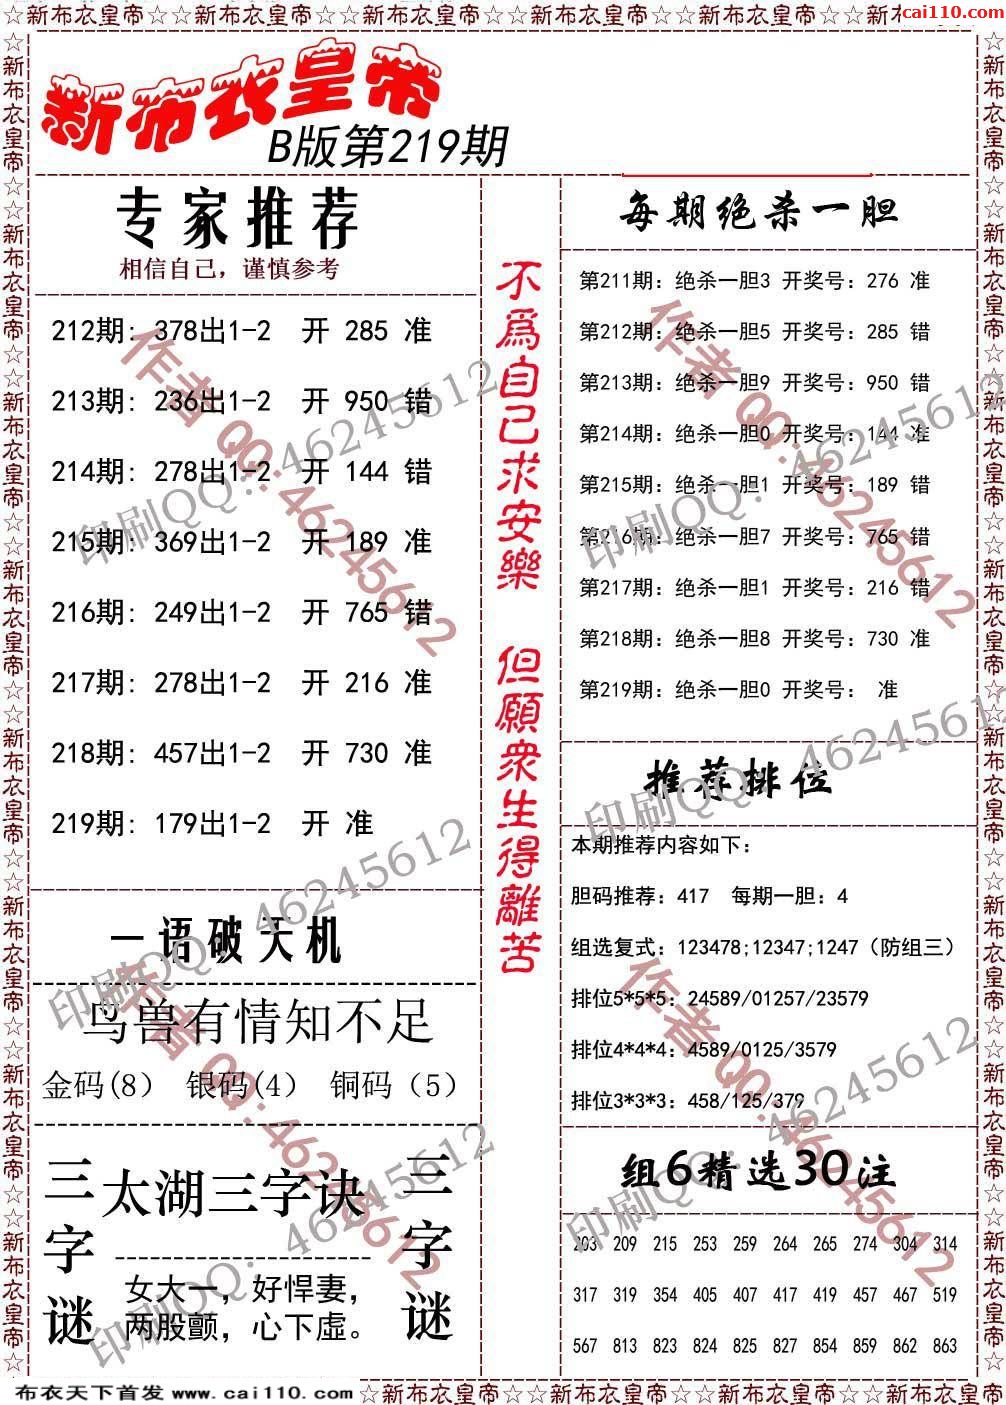 ☆新布衣皇帝☆☆新布衣皇帝☆☆新布衣皇帝☆☆新布衣皇帝☆☆新布衣皇帝☆☆新
cai110.com
新布衣皇帝
B版第219期
专家推荐
相信自己，谨慎参考
212期: 378出1-2 开 285 准
213期: 236出1-2 开 950 错
214期: 278出1-2 开 144 错
215期: 369出1-2 开 189 准
216期: 249出1-2 开 765 错
217期: 278出1-2 开 216 准
218期: 457出1-2 开 730 准
219期: 179出1-2 开 准
一语破天机
鸟兽有情知不足
金码(8） 银码(4） 铜码（5）
三字谜
太湖三字诀
女大一，好悍妻，
两股颤，心下虚。
三字谜
不為自己求安樂 但願衆生得離苦
每期绝杀一胆
第211期：绝杀一胆3 开奖号：276 准
第212期：绝杀一胆5 开奖号：285 错
第213期：绝杀一胆9 开奖号：950 错
第214期：绝杀一胆0 开奖号：144 准
第215期：绝杀一胆1 开奖号：189 错
第216期：绝杀一胆7 开奖号：765 错
第217期：绝杀一胆1 开奖号：216 错
第218期：绝杀一胆8 开奖号：730 准
第219期：绝杀一胆0 开奖号： 准
推荐排位
本期推荐内容如下：
胆码推荐：417 每期一胆：4
组选复式：123478;12347;1247（防组三）
排位5*5*5：24589/01257/23579
排位4*4*4：4589/0125/3579
排位3*3*3：458/125/379
组6精选30注
203 209 215 253 259 264 265 274 304 314
317 319 354 405 407 417 419 457 467 519
567 813 823 824 825 827 854 859 862 863
作者 QQ:46245612
印刷QQ：46245612
作者 QQ:46245612
印刷QQ：46245612
印刷QQ：46245612
印刷QQ：46245612
作者 QQ:46245612
作者 QQ:46245612
印刷QQ：46245612
印刷QQ：46245612
布衣天下首发 www.cai110.com
☆新布衣皇帝☆☆新布衣皇帝☆☆新布衣皇帝☆☆新布衣皇帝☆